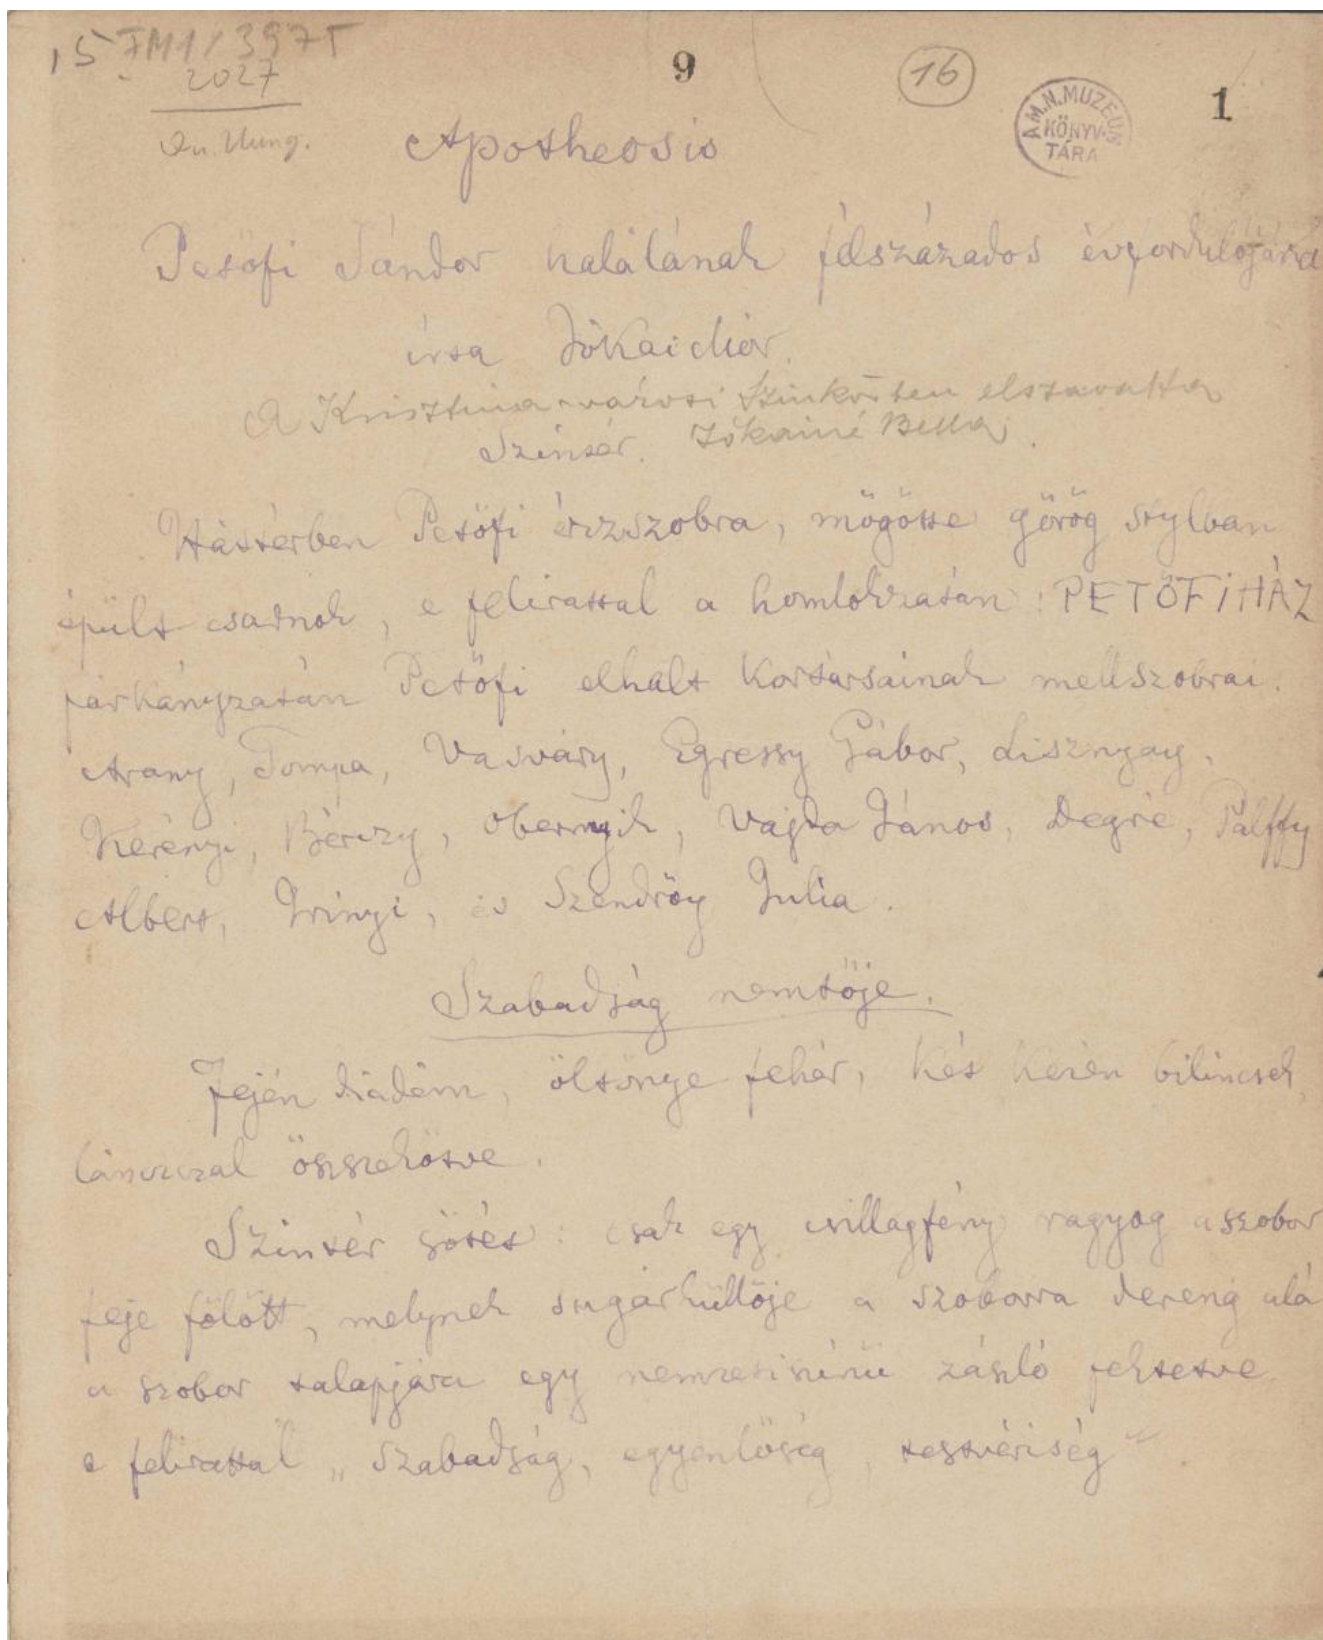 15 FM1/3975
2027
Qu. Hung.
9
16
1
A M. N. MUZEUM KÖNYVTÁRA
Apotheosis
Petőfi Sándor halálának félszázados évfordulójára
írta Jókai Mór.
A Krisztina-városi Szinkörben elszavalta
Jókainé Bella.
Színtér.
Háttérben Petőfi érczszobra, mögötte görög stylban
épült csarnok, e felirattal a homlokzatán: PETŐFIHÁZ
párkányzatán Petőfi elhalt kortársainak mellszobrai.
Arany, Tompa, Vasváry, Egressy Gábor, Lisznyay,
Kerényi, Bérczy, Obernyik, Vajda János, Degré, Pálffy
Albert, Irinyi, és Szendrőy Julia.
Szabadság nemtője.
Fején diadém, öltönye fehér, két kezén bilincsek,
lánczczal összekötve.
Szintér sötét: csak egy csillagfény ragyog a szobor
feje fölött, melynek sugárküllője a szoborra dereng alá
a szobor talapjára egy nemzetiszínü zászló fektetve
e felirattal „Szabadság, egyenlőség, testvériség”.